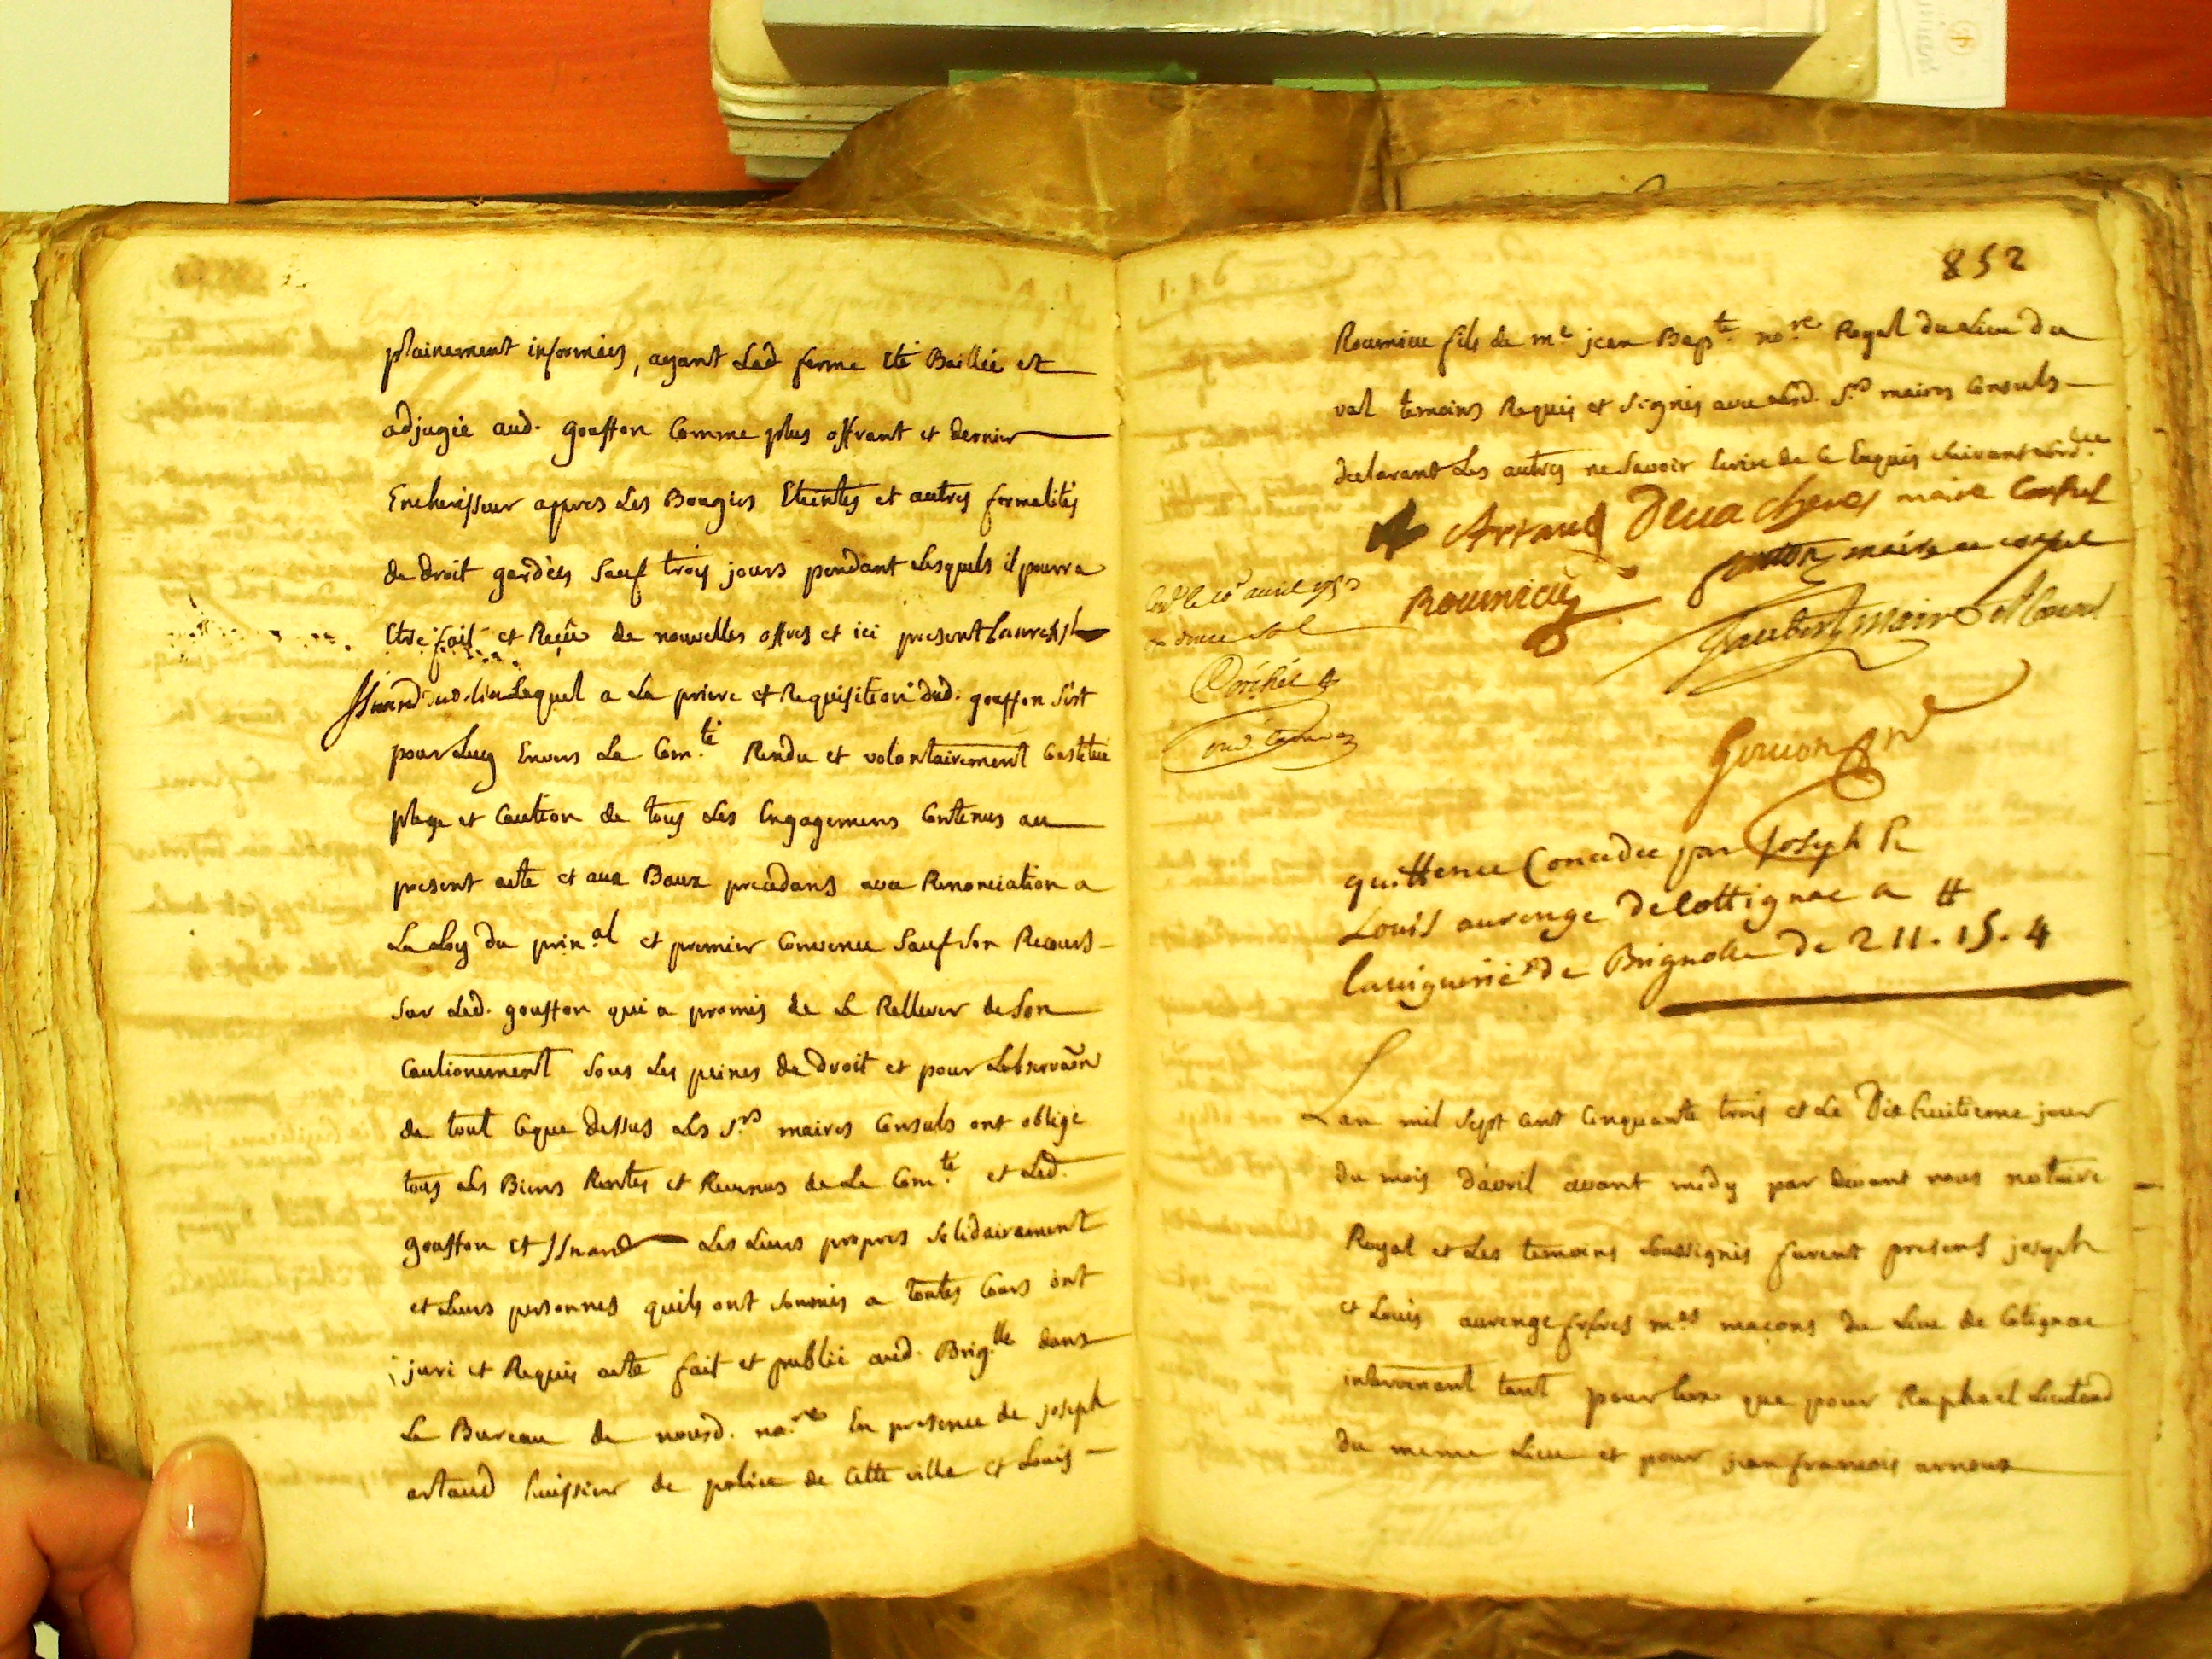 plainement informées, ayant Lad ferme été Baillée et
adjugée aud. gouffon Comme plus offrant et dernier
Encherisseur appres Les Bougies Eteintes et autres formalités
de droit gardées sauf trois jours pendant Lesquels il pourra
Etre fait et Reçu de nouvelles offres et ici present Laurens
Isnard dud. lieu Lequel a La priere et Requisition dud. gouffon s'est
pour Luy Envers La Com.té Rendu et volontairement Constitué
plege et Caution de tous Les Engagemens Contenus au
present acte et aux Baux precedans avec Renonciation a
La Loy du prin.al et premier Convenu sauf son Recours
sur Led. gouffon qui a promis de Le Rellever de son
Cautionement sous Les peines de droit et pour Lobservaõn
de tout Ceque dessus Les S.rs maires Consuls ont obligé
tous Les Biens Rentes et Revenus de La Com.té et Led.
gouffon et Isnard Les Leurs propres solidairement
et Leurs personnes quils ont soumis a toutes Cours ont
juré et Requis acte fait et publié aud. Brig.lle dans
Le Bureau de nousd. no.re En presence de joseph
artaud huissier de police de Cette ville et Louis
852
Roumieu fils de m.e jean Bap.te no.re Royal du Lieu du
val temoins Requis et signés avec Lesd. S.rs maires Consuls
declarant Les autres ne savoir Ecrire de Ce Enquis suivant Lord.ce
Artaud maire Consul
Roumieu maire Consul
Jaubert maire et Consul
avril 1753
douze sols
quittence Concedée par Joseph &
Louis aurenge de Cottignac a
la viguerie de Brignolle de 211.15.4
Lan mil sept cent Cinquante trois et Le Dix huitieme jour
du mois d'avril avant midy par devant nous notaire
Royal et Les temoins soussignés furent presens joseph
et Louis aurenge freres m.es maçons du Lieu de Cotignac
intervenant tant pour Eux que pour Raphael Lieutaud
du meme Lieu et pour jean francois arnoux